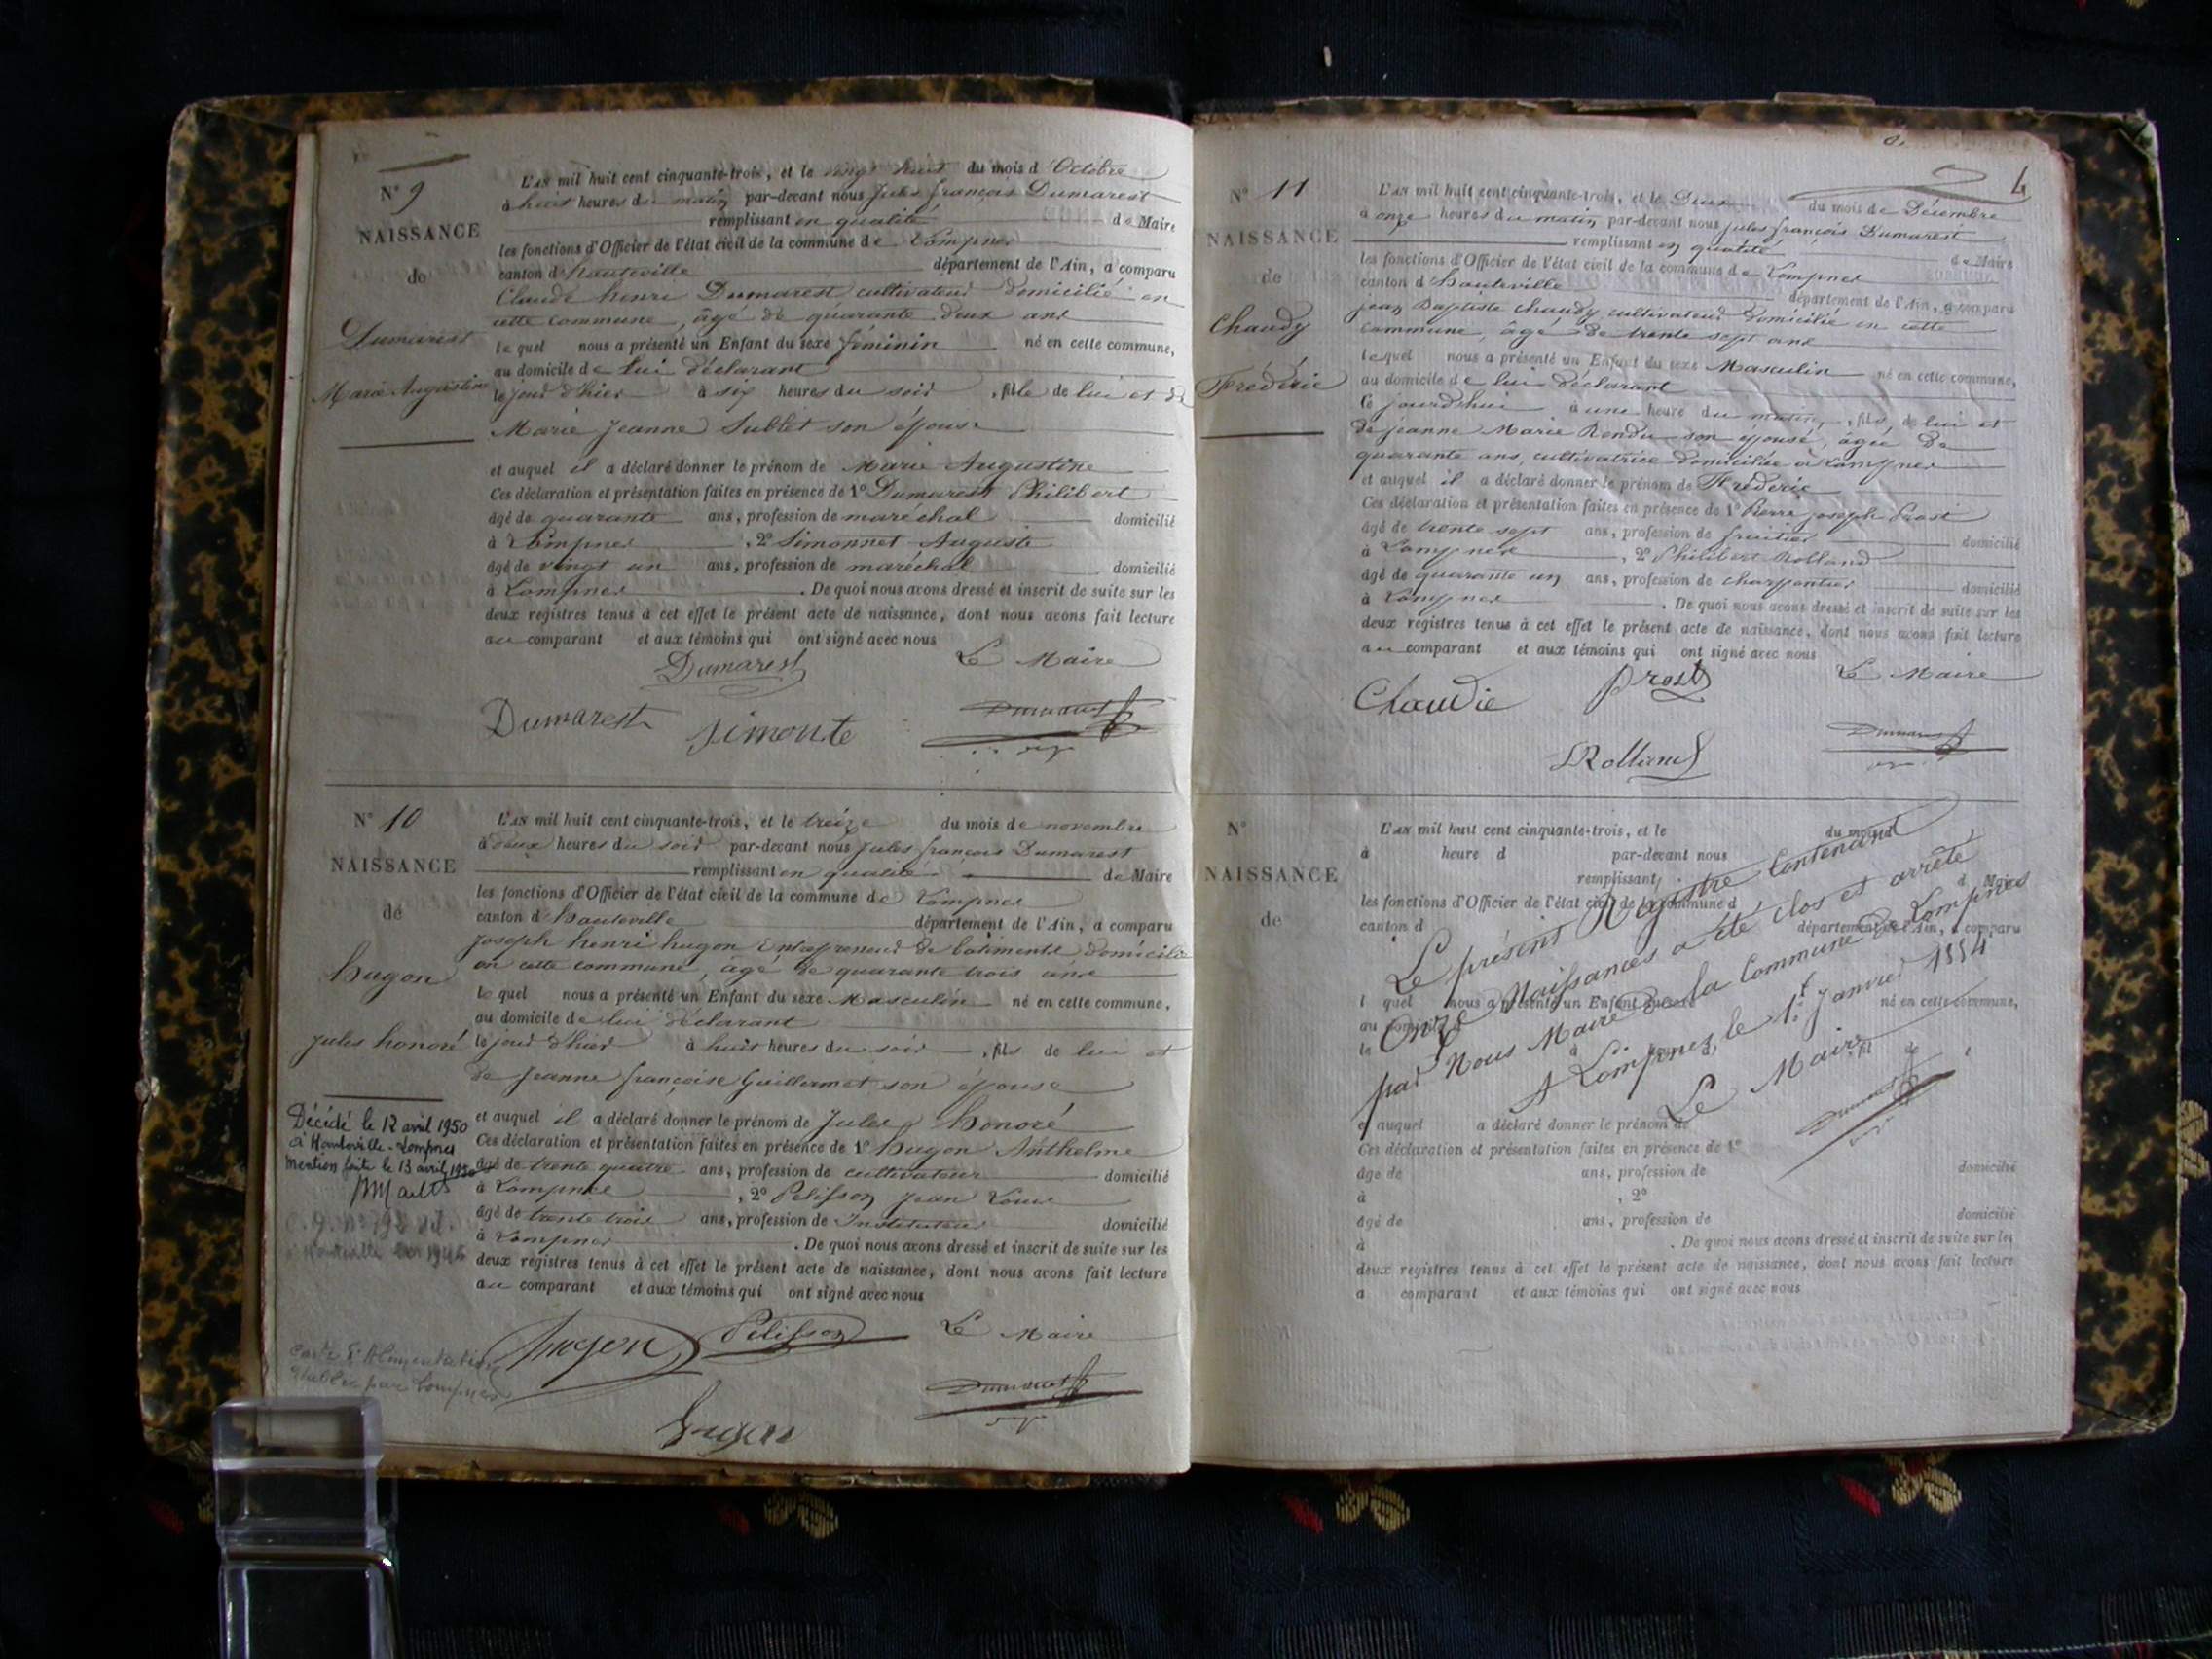 N° 9
NAISSANCE
de
Dumarest
Marie Augustine
L'AN mil huit cent cinquante-trois, et le vingt huit du mois d'Octobre
à huit heures du matin par-devant nous jules françois Dumarest
remplissant en qualité de Maire
les fonctions d'Officier de l'état civil de la commune de Lompnes
canton d'hauteville département de l'Ain, a comparu
Claude henri Dumarest, cultivateur domicilié en
cette commune, âgé de quarante deux ans
lequel nous a présenté un Enfant du sexe féminin né en cette commune,
au domicile de lui déclarant
le jour d'hier à six heures du soir, fille de lui et de
Marie Jeanne Sublet son épouse
et auquel il a déclaré donner le prénom de Marie Augustine
Ces déclaration et présentation faites en présence de 1° Dumarest Philibert
âgé de quarante ans, profession de maréchal domicilié
à Lompnes, 2° Simonnet Auguste
âgé de vingt un ans, profession de maréchal domicilié
à Lompnes. De quoi nous avons dressé et inscrit de suite sur les
deux registres tenus à cet effet le présent acte de naissance, dont nous avons fait lecture
au comparant et aux témoins qui ont signé avec nous
Dumarest Le Maire
Dumarest Simonte Dumarest
N° 10
NAISSANCE
de
hugon
jules honoré
L'AN mil huit cent cinquante-trois, et le treize du mois de novembre
à deux heures du soir par-devant nous jules françois Dumarest
remplissant en qualité de Maire
les fonctions d'Officier de l'état civil de la commune de Lompnes
canton d'hauteville département de l'Ain, a comparu
joseph henri hugon Entrepreneur de batiments, domicilié
en cette commune, âgé de quarante trois ans
lequel nous a présenté un Enfant du sexe Masculin né en cette commune,
au domicile de lui déclarant
le jour d'hier à huit heures du soir, fils de lui et
de Jeanne françoise Guillermet son épouse
et auquel il a déclaré donner le prénom de Jules honoré
Ces déclaration et présentation faites en présence de 1° hugon Anthelme
âgé de trente quatre ans, profession de cultivateur domicilié
à Lompnes, 2° Pelisson Jean Louis
âgé de trente trois ans, profession de Instituteur domicilié
à Lompnes. De quoi nous avons dressé et inscrit de suite sur les
deux registres tenus à cet effet le présent acte de naissance, dont nous avons fait lecture
au comparant et aux témoins qui ont signé avec nous
Décédé le 12 avril 1950
à Hauteville-Lompnes
Mention faite le 13 avril 1950
hugon Pelisson Le Maire
Carte d'Alimentation
établie par Lompnes
Dumarest
hugon
4
N° 11
NAISSANCE
de
Chaudy
Frédéric
L'AN mil huit cent cinquante-trois, et le Deux du mois de Décembre
à onze heures du matin par-devant nous jules françois Dumarest
remplissant en qualité de Maire
les fonctions d'Officier de l'état civil de la commune de Lompnes
canton d'hauteville département de l'Ain, a comparu
jean Baptiste Chaudy, cultivateur domicilié en cette
commune, âgé de trente sept ans
lequel nous a présenté un Enfant du sexe Masculin né en cette commune,
au domicile de lui déclarant
le jourd'hui à une heure du matin, fils de lui et
de jeanne Marie Rendu son épouse, âgée de
quarante ans, cultivatrice domiciliée à Lompnes
et auquel il a déclaré donner le prénom de Frédéric
Ces déclaration et présentation faites en présence de 1° Pierre joseph Prost
âgé de trente sept ans, profession de fruitier domicilié
à Lompnes, 2° Philibert Rolland
âgé de quarante un ans, profession de charpentier domicilié
à Lompnes. De quoi nous avons dressé et inscrit de suite sur les
deux registres tenus à cet effet le présent acte de naissance, dont nous avons fait lecture
au comparant et aux témoins qui ont signé avec nous
Chaudie Prost Le Maire
Rolland Dumarest
N°
NAISSANCE
de
L'AN mil huit cent cinquante-trois, et le du mois d
à heure d par-devant nous
remplissant d Maire
les fonctions d'Officier de l'état civil de la commune d
canton d département de l'Ain, a comparu
l quel nous a présenté un Enfant du sexe né en cette commune,
au domicile d
le à heure d, fil de
et auquel a déclaré donner le prénom de
Ces déclaration et présentation faites en présence de 1°
âgé de ans, profession de domicilié
à , 2°
âgé de ans, profession de domicilié
à . De quoi nous avons dressé et inscrit de suite sur les
deux registres tenus à cet effet le présent acte de naissance, dont nous avons fait lecture
a comparant et aux témoins qui ont signé avec nous
Le présent Registre Contenant
Onze Naissances a été clos et arrêté
par Nous Maire de la Commune de Lompnes
A Lompnes, le 1er Janvier 1854
Le Maire
Dumarest